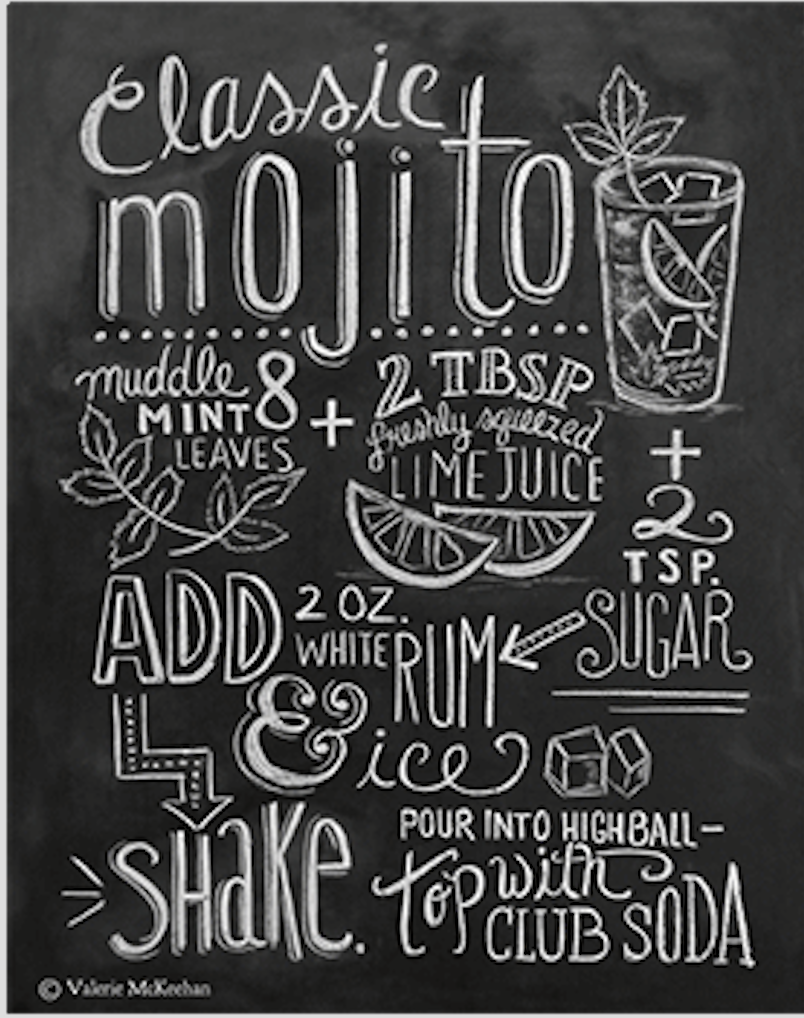 Classic
mojito
muddle 8
MINT
LEAVES
+
2 TBSP
freshly squeezed
LIME JUICE
+
2
TSP.
SUGAR
ADD 2 OZ.
WHITE RUM
& ice
SHAKE.
POUR INTO HIGHBALL–
top with
CLUB SODA
© Valerie McKeehan